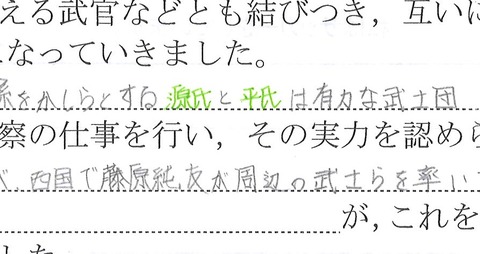 える武官などとも結びつき，互いに
なっていきました。
系をかしらとする 源氏 と 平氏 は有力な武士団
察の仕事を行い，その実力を認めら
西国で藤原純友が周辺の武士らを率い
が，これを
した